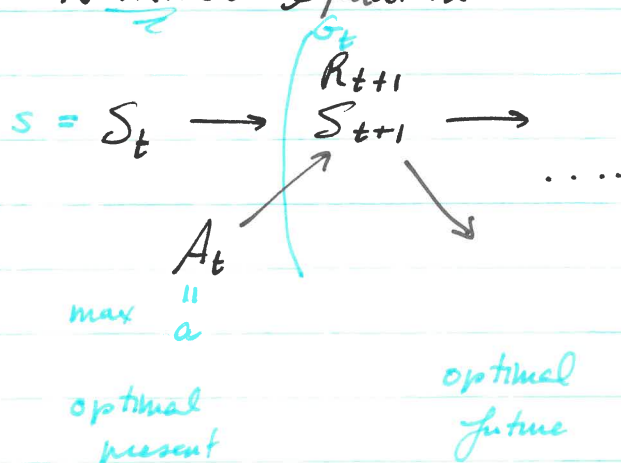 G_t
R_{t+1}
s = S_t → S_{t+1} →
. . . .
A_t
max a
optimal present
optimal future